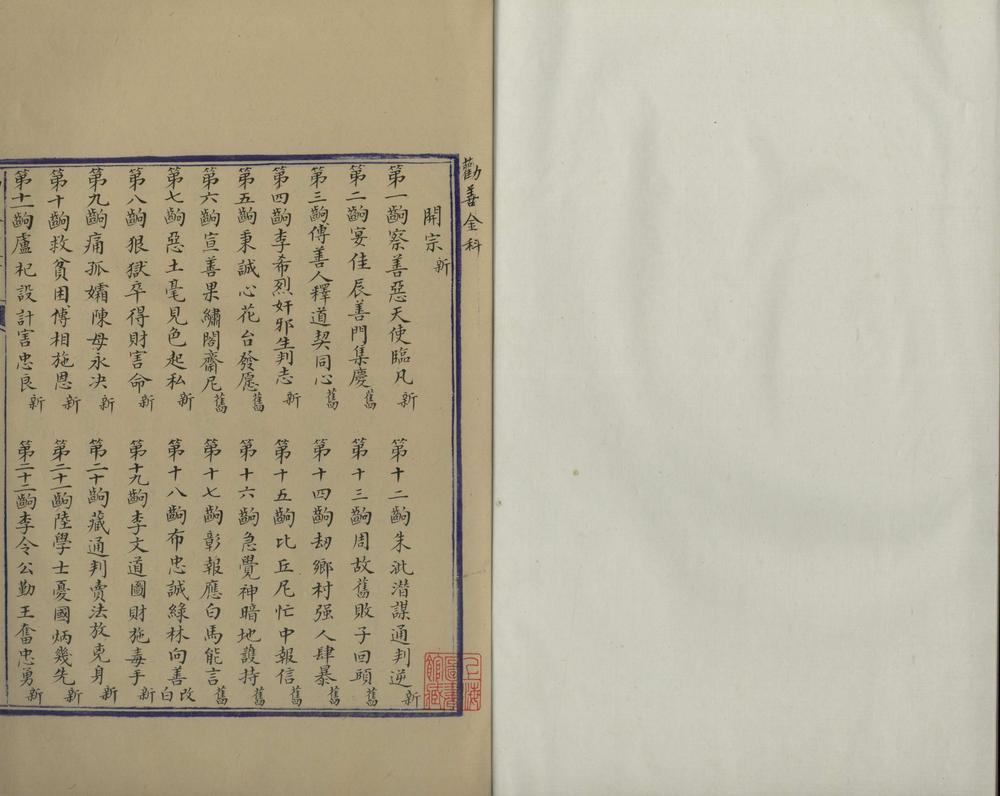 勸善金科
開宗 新
第一齣察善惡天使臨凡 新
第十二齣朱泚潛謀通判逆 新
第二齣宴佳辰善門集慶 舊
第十三齣周故舊敗子回頭 舊
第三齣傳善人釋道契同心 舊
第十四齣刼鄉村强人肆暴 舊
第四齣李希烈奸邪生判志 新
第十五齣比丘尼忙中報信 舊
第五齣秉誠心花台發愿 舊
第十六齣急覺神暗地護持 舊
第六齣宣善果繡閣齋尼 舊
第十七齣彰報應白馬能言 舊
第七齣惡土毫見色起私 新
第十八齣布忠誠綠林向善 改白
第八齣狠獄卒得財害命 新
第十九齣李文道圖財施毒手 新
第九齣痛孤孀陳母永决 新
第二十齣藏通判賣法放克身 新
第十齣救貧困傅相施恩 新
第二十一齣陸學士憂國炳幾先 新
第十一齣盧杞設計害忠良 新
第二十二齣李令公勤王奮忠勇 新
上海圖書館藏